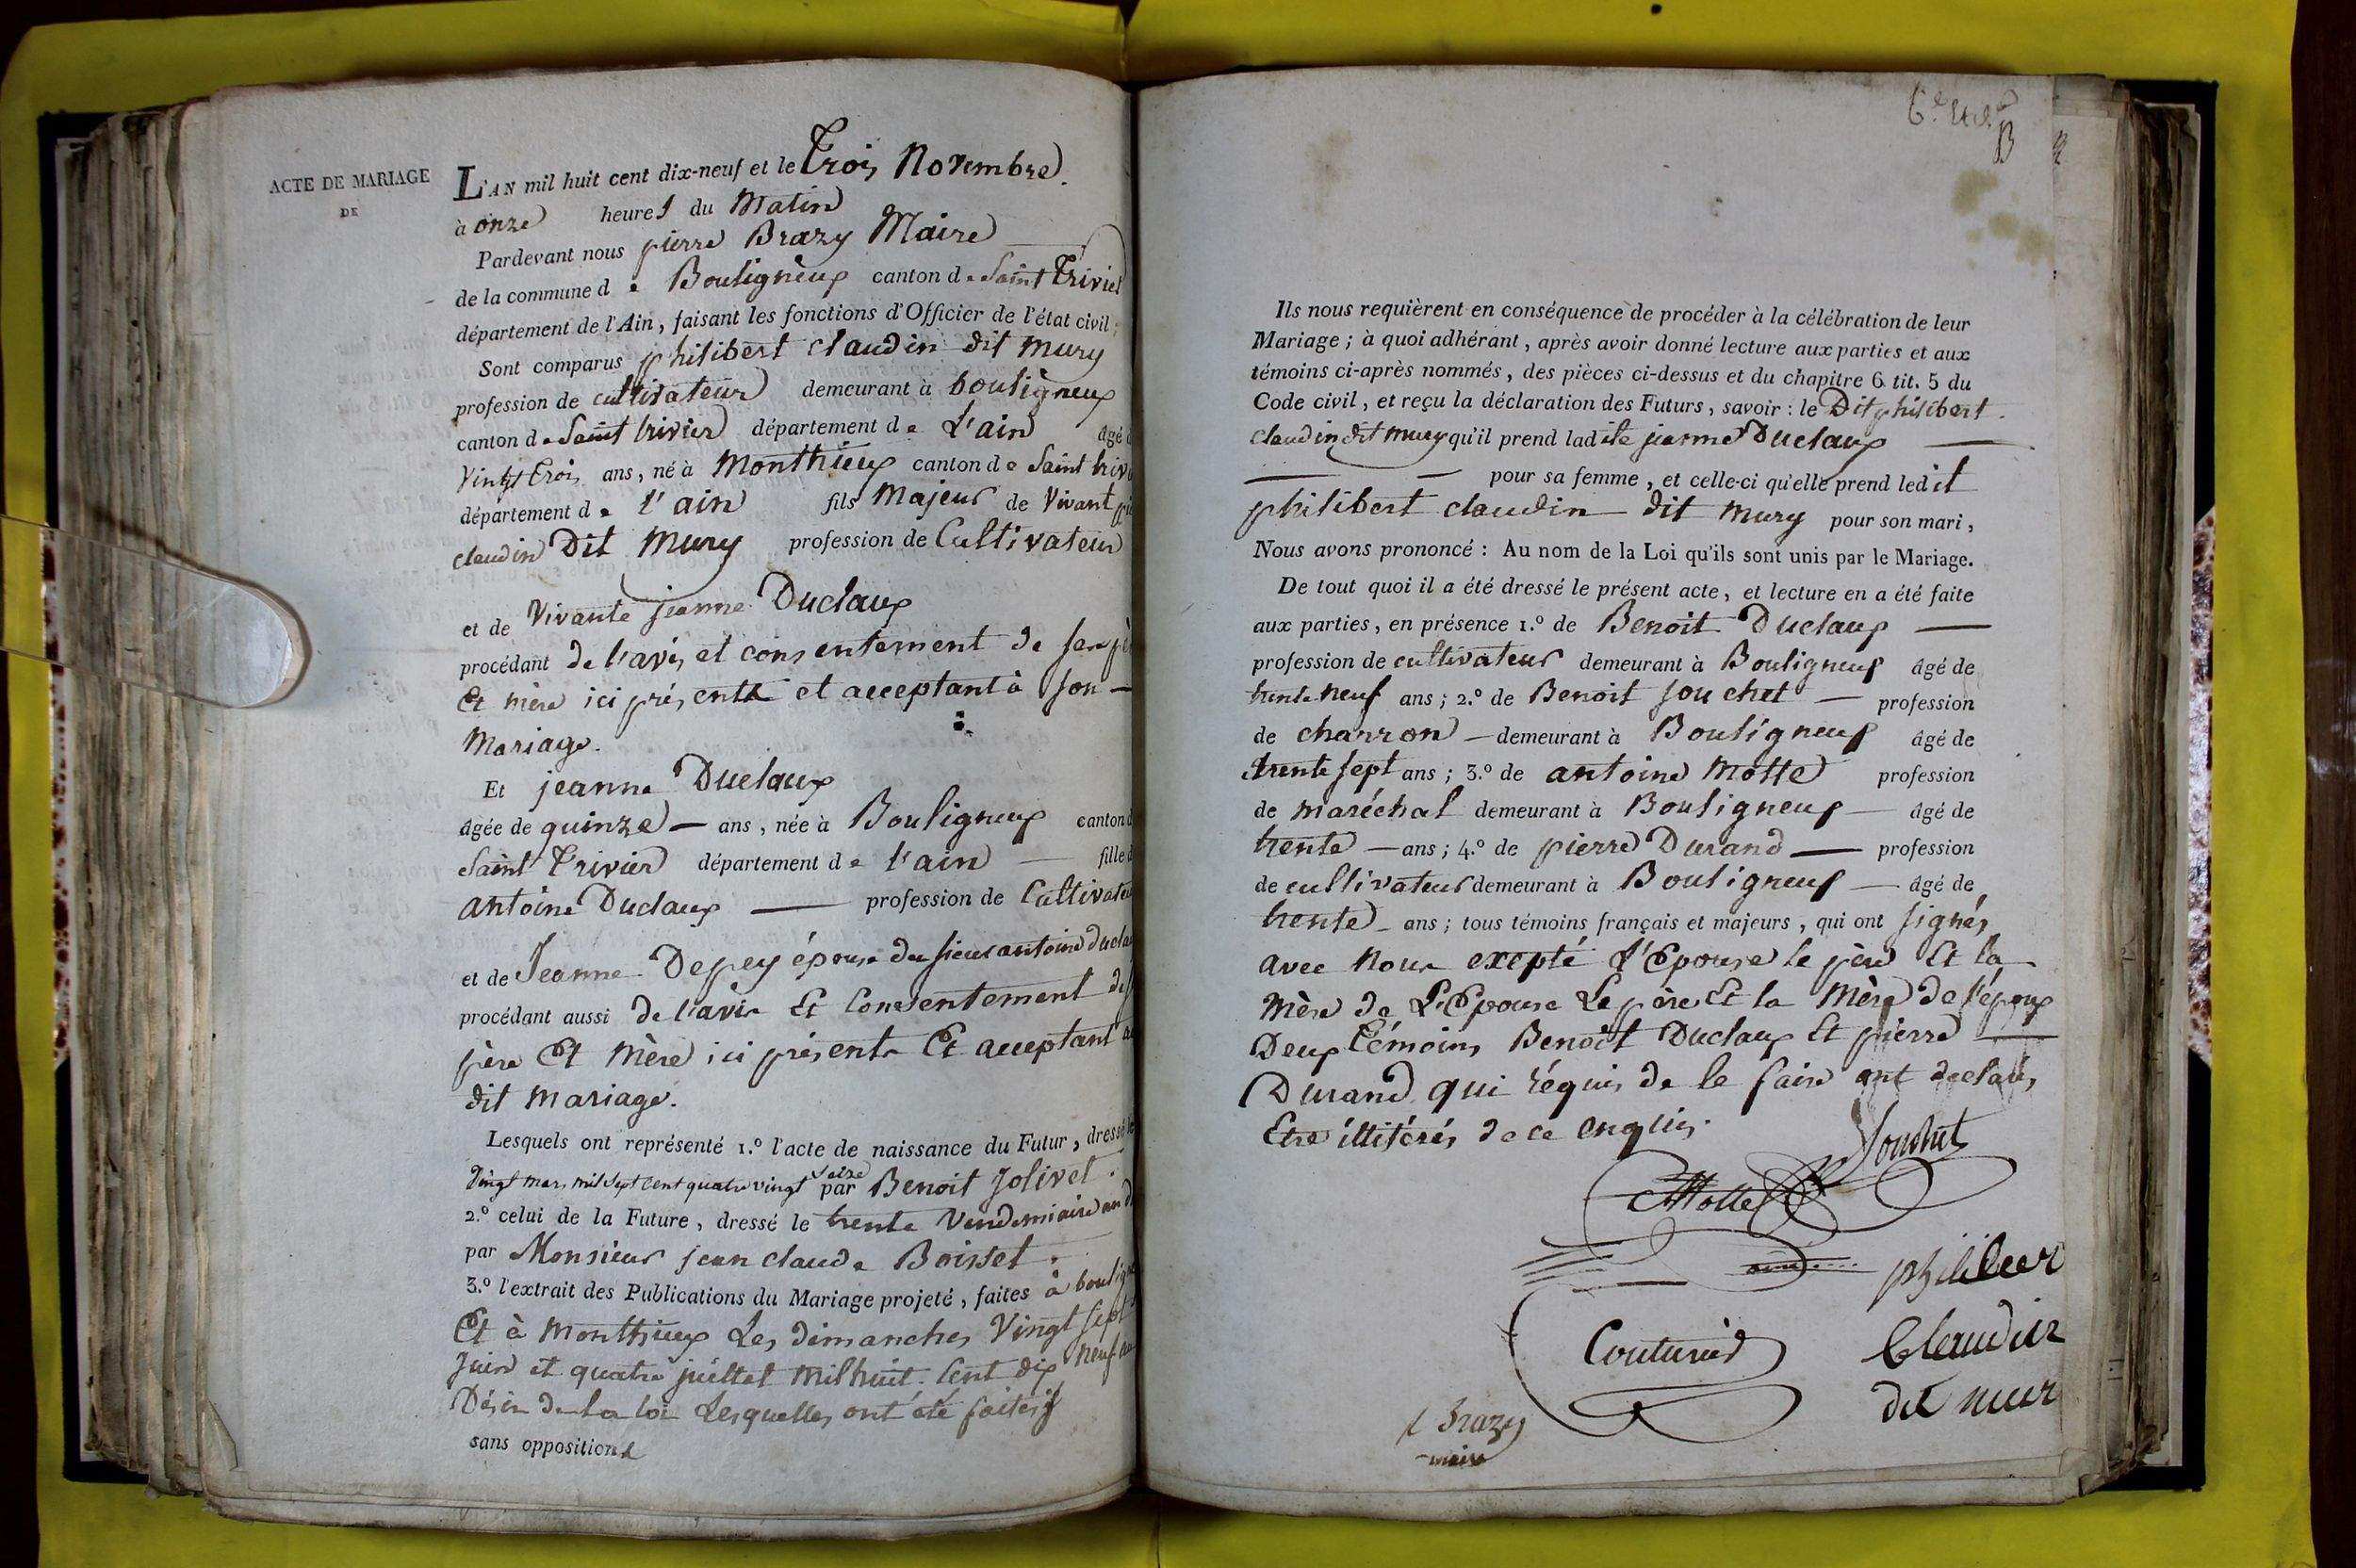 ACTE DE MARIAGE
DE
L'AN mil huit cent dix-neuf et le Trois Novembre
à onze heures du Matin
Pardevant nous pierre Brazy Maire
de la commune de Bouligneux canton de Saint Trivier
département de l'Ain, faisant les fonctions d'Officier de l'état civil;
Sont comparus philibert claudin dit mury
profession de cultivateur demeurant à bouligneux
canton de Saint trivier département de L'ain âgé d
Vingt trois ans, né à Monthieux canton de Saint triv
département de l'ain fils Majeur de Vivant
claudin Dit Mury profession de Cultivateur
et de Vivante jeanne Duclaux
procédant de l'avis et consentement de ses pè
Et mère ici présents et acceptant à son
Mariage.
Et jeanne Duclaux
âgée de quinze ans, née à Bouligneux canton d
Saint Trivier département de l'ain fille d
antoine Duclaux profession de Cultivateu
et de Jeanne Depey épouse du sieur antoine ducla
procédant aussi de l'avis Et Consentement de
père Et Mère ici présents Et acceptant au
dit mariage.
Lesquels ont représenté 1.º l'acte de naissance du Futur, dressé le
Vingt mars mil sept cent quatre vingt seize par Benoit Jolivet.
2.º celui de la Future, dressé le trente Vendemiaire an
par Monsieur jean claude Boisset.
3.º l'extrait des Publications du Mariage projeté, faites à bouligne
Et à Monthieux Les dimanches Vingt sept
Juin et quatre juillet mil huit Cent dix neuf au
Désir de la loi Lesquelles ont été faites
sans opposition
6.e
B
Ils nous requièrent en conséquence de procéder à la célébration de leur
Mariage; à quoi adhérant, après avoir donné lecture aux parties et aux
témoins ci-après nommés, des pièces ci-dessus et du chapitre 6 tit. 5 du
Code civil, et reçu la déclaration des Futurs, savoir: le Dit philibert
claudin dit mury qu'il prend ladite jeanne Duclaux
pour sa femme, et celle-ci qu'elle prend ledit
philibert claudin dit mury pour son mari,
Nous avons prononcé: Au nom de la Loi qu'ils sont unis par le Mariage.
De tout quoi il a été dressé le présent acte, et lecture en a été faite
aux parties, en présence 1.º de Benoit Duclaux
profession de cultivateur demeurant à Bouligneux âgé de
trente neuf ans; 2.º de Benoit Souchet profession
de charron demeurant à Bouligneux âgé de
trente sept ans; 3.º de antoine Motte profession
de maréchal demeurant à Bouligneux âgé de
trente ans; 4.º de pierre Durand profession
de cultivateur demeurant à Bouligneux âgé de
trente ans; tous témoins français et majeurs, qui ont signés
avec Nous exepté L'Epouse le père Et la
Mère de L'Epouse Le père Et la Mère de l'époux
Deux Témoins Benoit Duclaux Et pierre
Durand qui réquis de le faire ont declarés
Etre illitérés de ce enquis.
Souchet
Motte
philiber
Couturier
Claudin
P Brazy
dit mur
maire